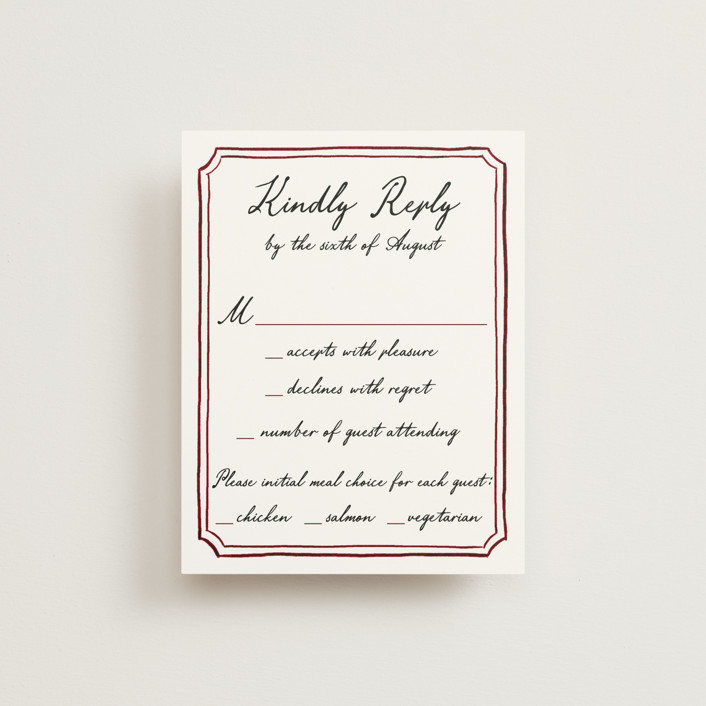 Kindly Reply
by the sixth of August
M
accepts with pleasure
declines with regret
number of guest attending
Please initial meal choice for each guest:
chicken salmon vegetarian